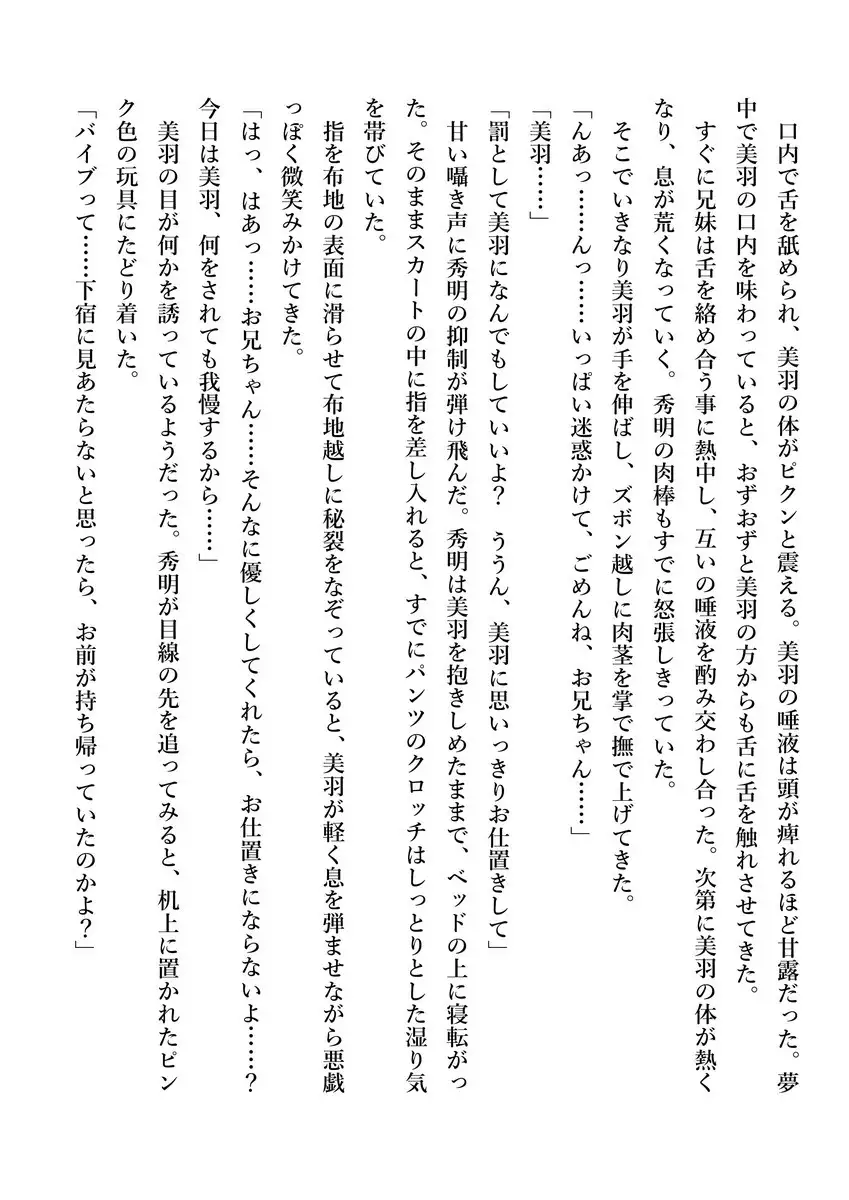 口内で舌を舐められ、美羽の体がピクンと震える。美羽の唾液は頭が痺れるほど甘露だった。夢
中で美羽の口内を味わっていると、おずおずと美羽の方からも舌に舌を触れさせてきた。
すぐに兄妹は舌を絡め合う事に熱中し、互いの唾液を酌み交わし合った。次第に美羽の体が熱く
なり、息が荒くなっていく。秀明の肉棒もすでに怒張しきっていた。
そこでいきなり美羽が手を伸ばし、ズボン越しに肉茎を掌で撫で上げてきた。
「んあっ……んっ……いっぱい迷惑かけて、ごめんね、お兄ちゃん……」
「美羽……」
「罰として美羽になんでもしていいよ？　ううん、美羽に思いっきりお仕置きして」
甘い囁き声に秀明の抑制が弾け飛んだ。秀明は美羽を抱きしめたままで、ベッドの上に寝転がっ
た。そのままスカートの中に指を差し入れると、すでにパンツのクロッチはしっとりとした湿り気
を帯びていた。
指を布地の表面に滑らせて布地越しに秘裂をなぞっていると、美羽が軽く息を弾ませながら悪戯
っぽく微笑みかけてきた。
「はっ、はあっ……お兄ちゃん……そんなに優しくしてくれたら、お仕置きにならないよ……？
今日は美羽、何をされても我慢するから……」
美羽の目が何かを誘っているようだった。秀明が目線の先を追ってみると、机上に置かれたピン
ク色の玩具にたどり着いた。
「バイブって……下宿に見あたらないと思ったら、お前が持ち帰っていたのかよ？」